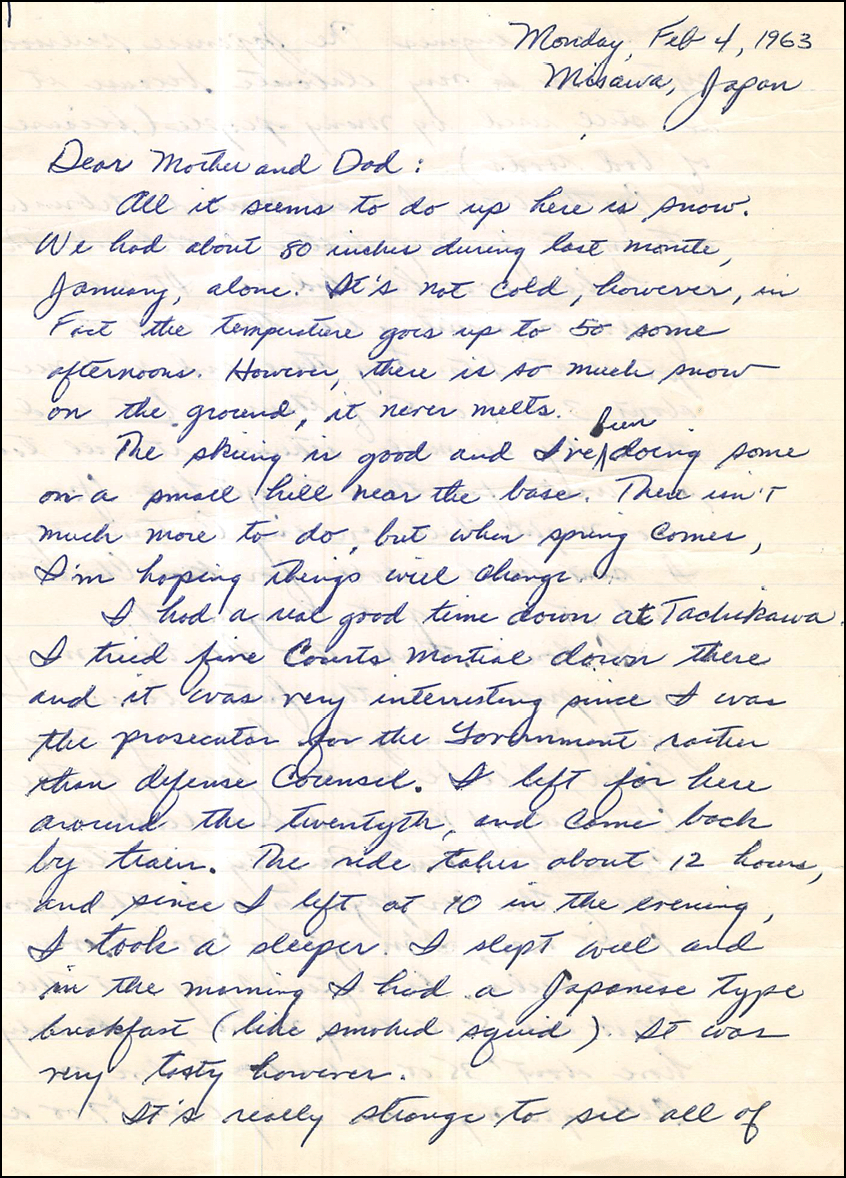 Monday, Feb 4, 1963
Misawa, Japan
Dear Mother and Dad:
All it seems to do up here is snow.
We had about 80 inches during last month,
January, alone. It's not cold, however, in
Fact the temperature goes up to 50 some
afternoons. However, there is so much snow
on the ground, it never melts.
The skiing is good and I've been doing some
on a small hill near the base. There isn't
much more to do, but when spring comes,
I'm hoping things will change.
I had a real good time down at Tachikawa.
I tried five Courts Martial down there
and it was very interresting since I was
the prosecutor for the Government rather
than defense Counsel. I left for here
around the twentyth, and came back
by train. The ride takes about 12 hours,
and since I left at 10 in the evening,
I took a sleeper. I slept well and
in the morning I had a Japanese type
breakfast (like smoked squid). It was
very tasty however.
It's really strange to see all of